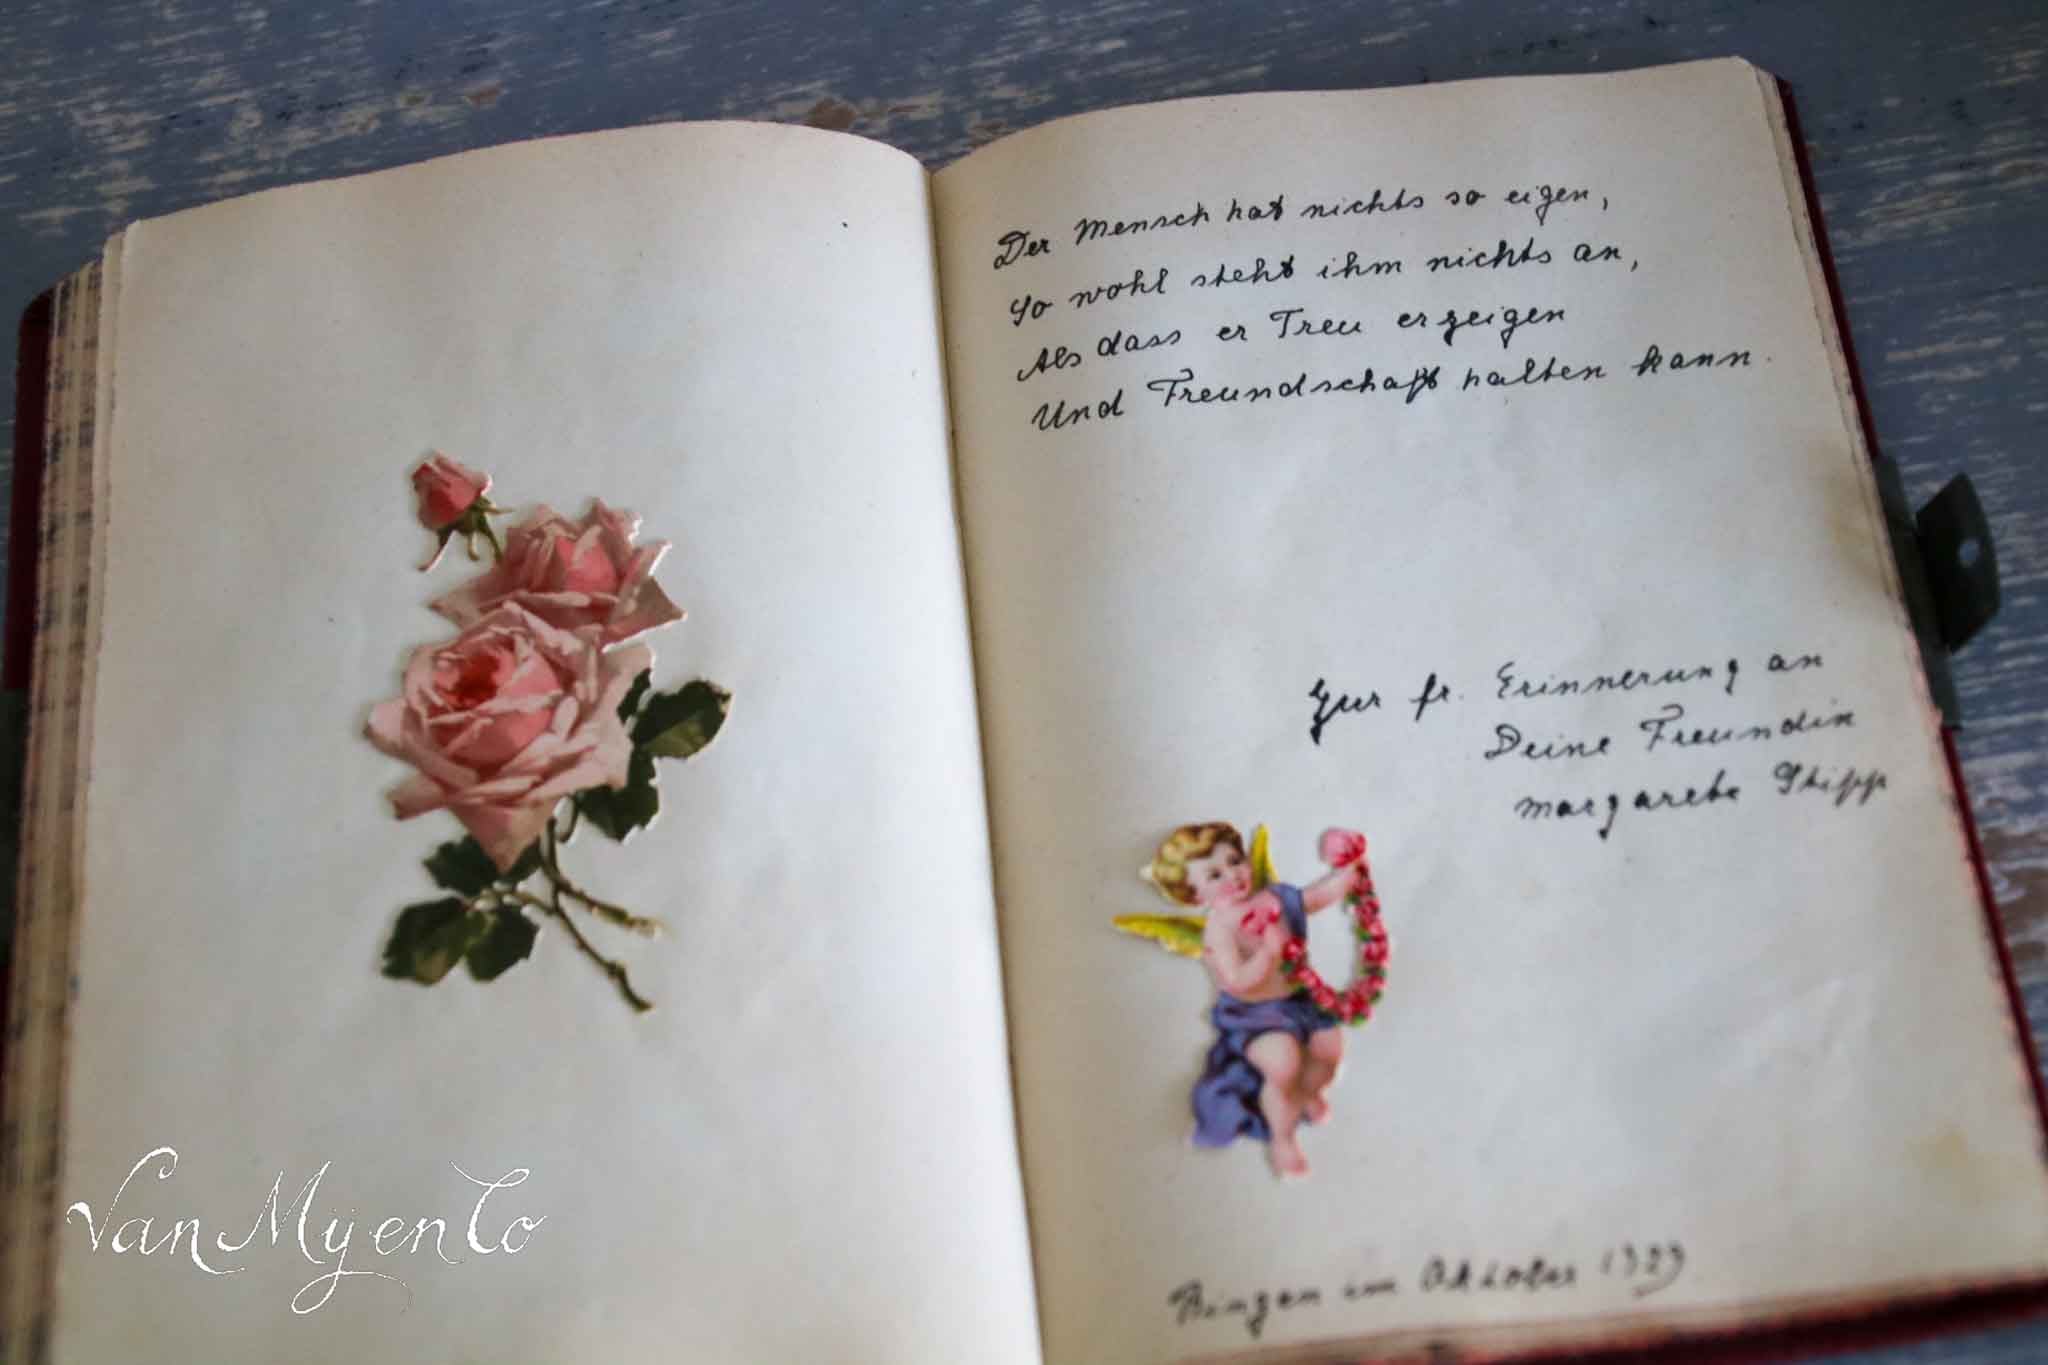 Der Mensch hat nichts so eigen,
So wohl steht ihm nichts an,
Als dass er Treu erzeigen
Und Freundschaft halten kann.
Zur fr. Erinnerung an
Deine Freundin
Margarete Stipp
Bingen im Oktober
VanMijenCo